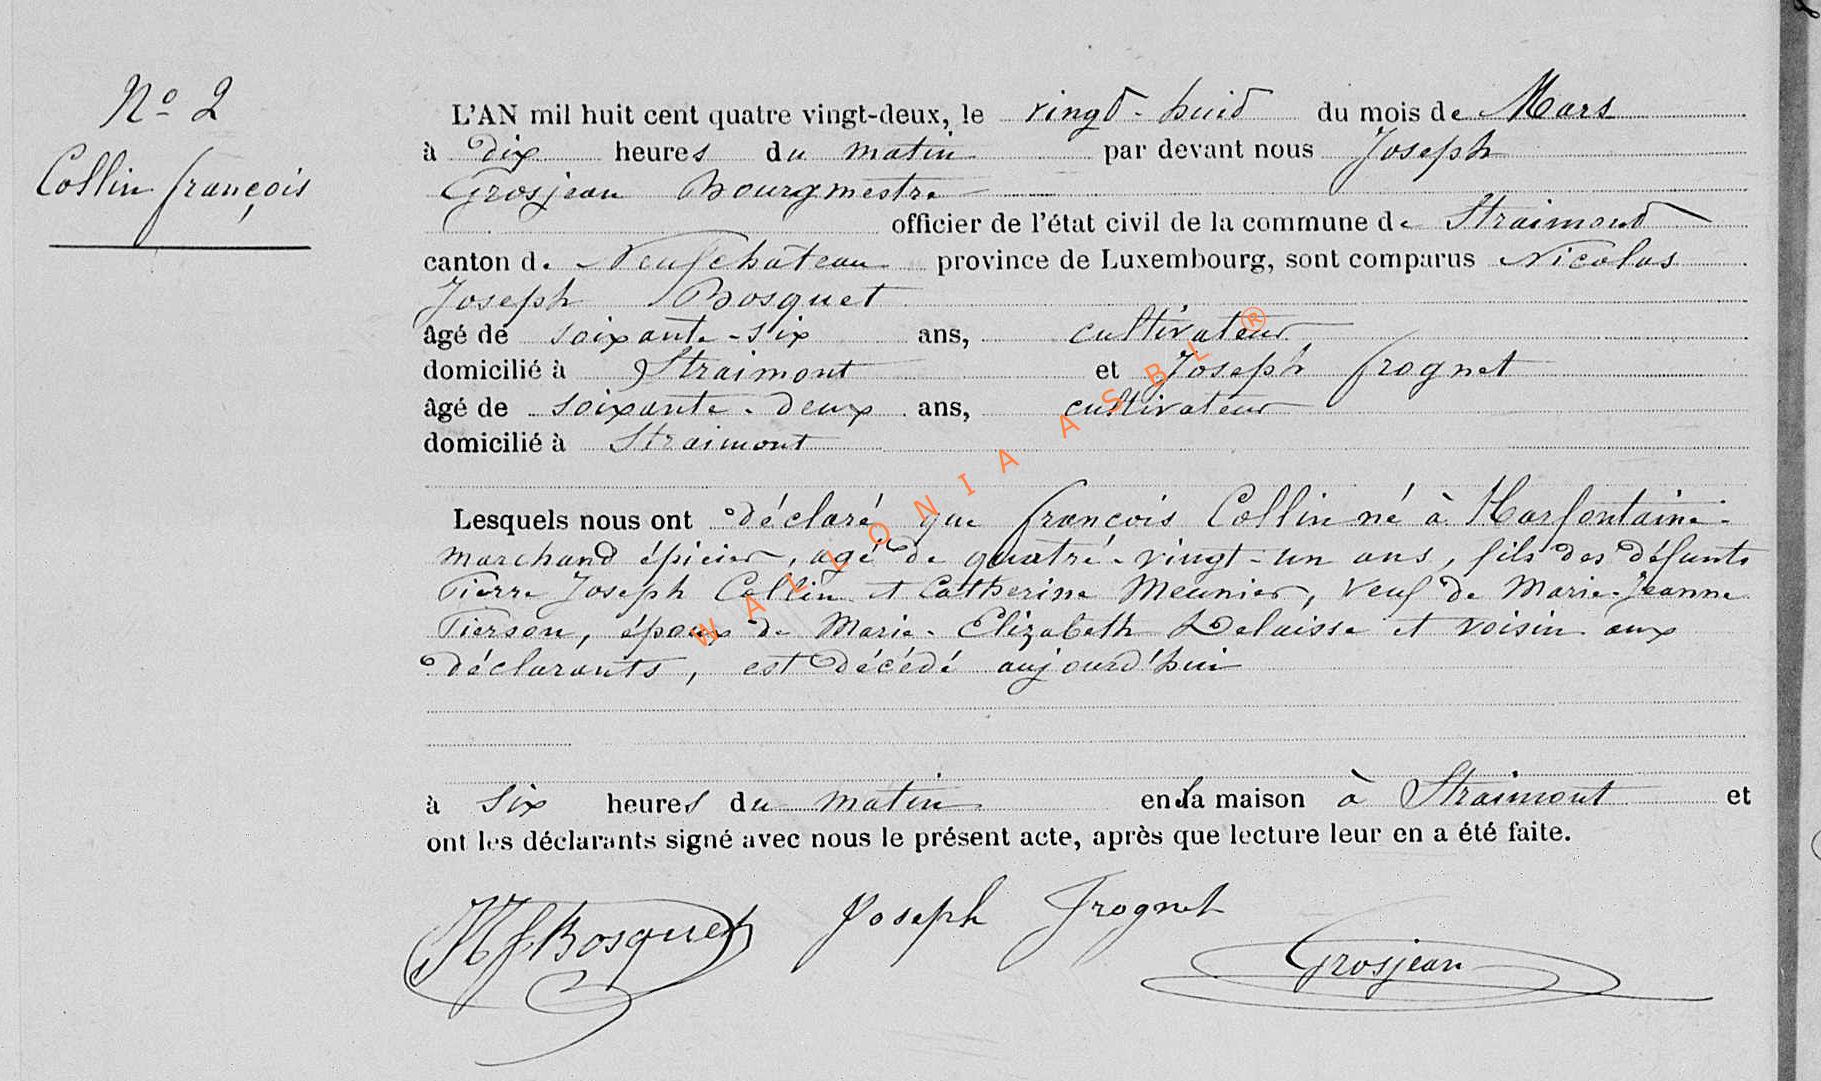 Nº 2
Collin françois
L'AN mil huit cent quatre vingt-deux, le vingt-huit du mois de Mars
à dix heures du matin par devant nous Joseph
Grosjean Bourgmestre
officier de l'état civil de la commune de Straimont
canton de Neufchâteau province de Luxembourg, sont comparus Nicolas
Joseph Bosquet
âgé de soixante-six ans, cultivateur
domicilié à Straimont et Joseph frognet
âgé de soixante-deux ans, cultivateur
domicilié à Straimont
Lesquels nous ont déclaré que françois Collin né à Harfontaine
marchand épicier, agé de quatre-vingt-un ans, fils des défunts
Pierre Joseph Collin et Catherine Meunier, veuf de Marie-Jeanne
Pierson, époux de Marie-Elizabeth Delaisse et voisin aux
déclarants, est décédé aujourd'hui
à six heures du matin en sa maison à Straimont et
ont les déclarants signé avec nous le présent acte, après que lecture leur en a été faite.
NJBosquet Joseph Frognet
Grosjean
WALLONIA ASBL ®